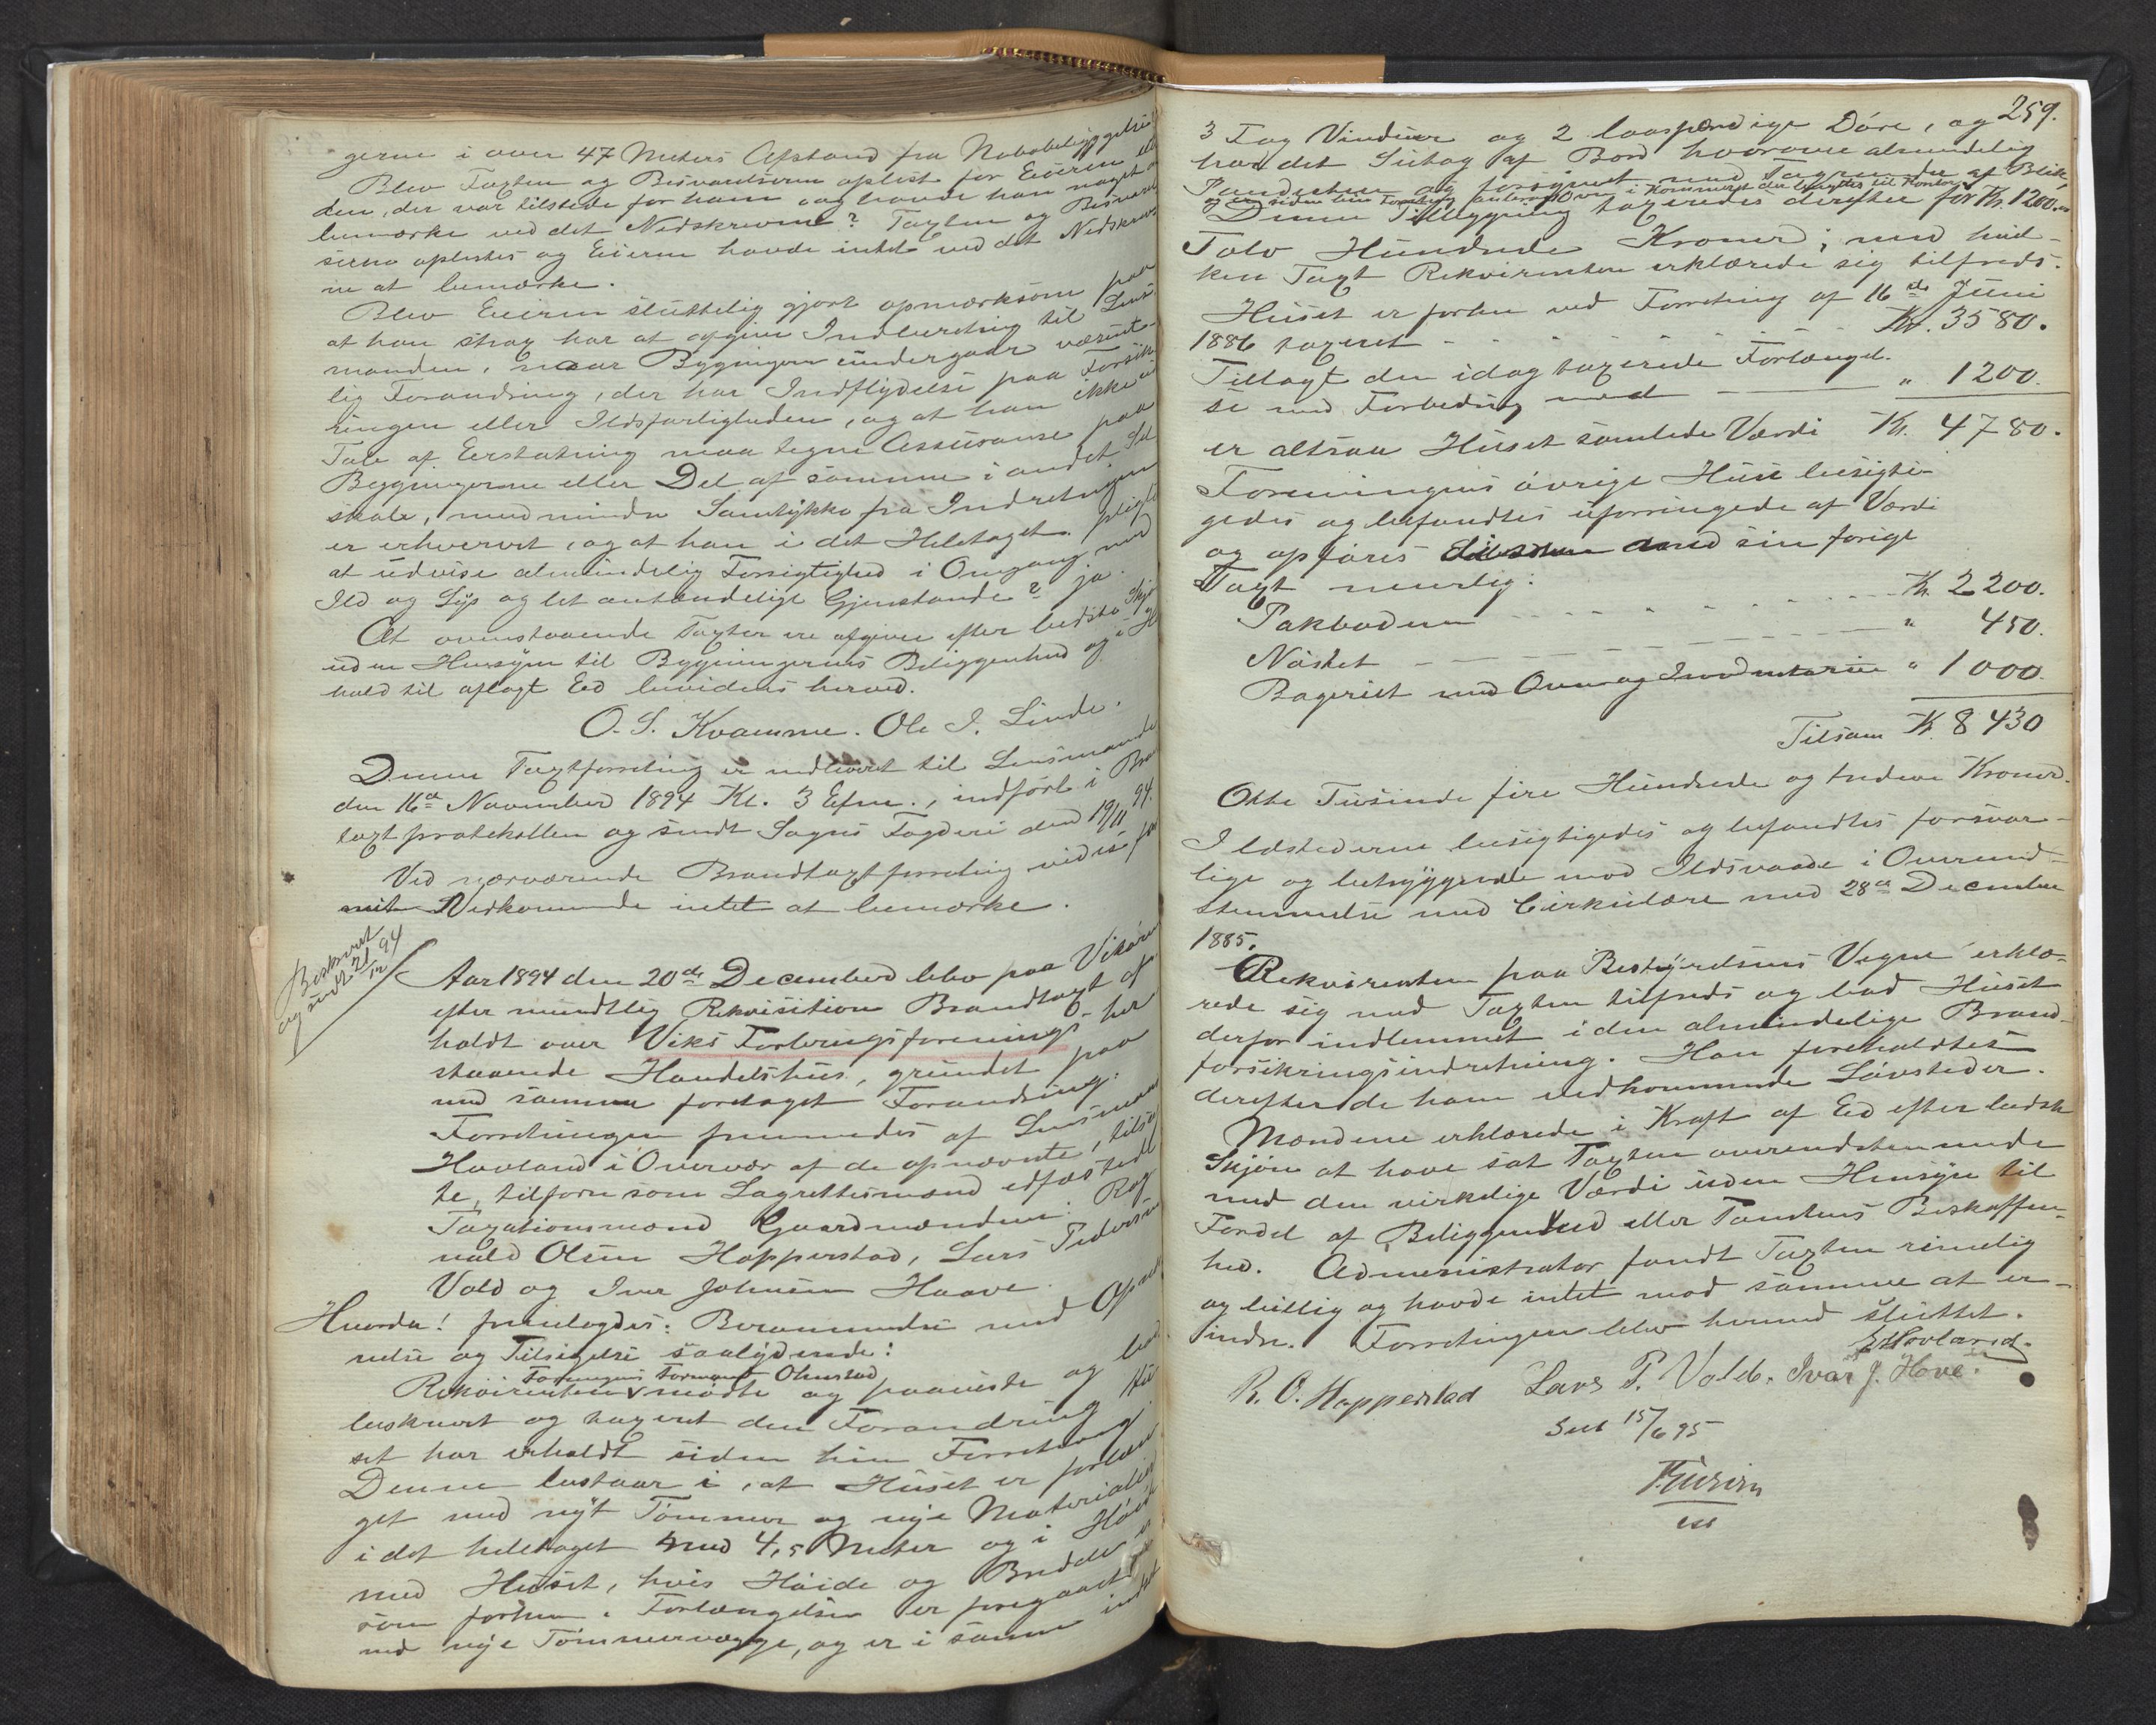 gerne i over 47 Meters Afstand fra Nabobebyggelse
Blev Taxten og Besvarelserne oplæst for Eieren
den, der var tilstede for ham og havde han noget
bemærke ved det Nedskrevne? Taxten og Besvarel
serne oplæstes og Eieren havde intet ved det Nedskrev
ne at bemærke.
Blev Eieren sluttelig gjort opmærksom paa
at han strax har at opgive Indberetning til Lens
manden, naar Bygningen undergaar væsent-
lig Forandring, der har Indflydelse paa Forsik
ringen eller Ildsfarligheden, og at han ikke
Tale af Erstatning maa tegne Assuranse paa
Bygningerne eller Del af samme i andet Sel
skab, medmindre Samtykke fra Indretningen
er erhvervet, og at han i det Heletaget pligt
at udvise almindelig Forsigtighed i Omgang med
Ild og Lys og let antændelige Gjenstande? ja.
At ovenstaaende Taxter ere afgivne efter bedste Skjøn
uden Hensyn til Bygningernes Beliggenhed og i
hold til aflagt Ed bevidnes herved.
O. S. Kvamme. Ole I. Linde.
Denne Taxtforretning er indleveret til Lensmande
den 16de November 1894 Kl. 3 Efm., indført i Bra
taxtprotokollen og sendt Sogns Fogderi den 19/11 94.
Ved nærværende Brandtaxtforretning vides for
mit Vedkommende intet at bemærke.
Beskrevet
og sendt 21/12 94
Aar 1894 den 20de December blev paa Vikøren
efter mundtlig Rekvisition Brandtaxt af
holdt over Viks Forbrugsforenings her
staaende Handelshus, grundet paa
med samme foretaget Forandring.
Forretningen fremmedes af Lensmand
Hovland i Overvær af de opnævnte, tilsag
te, tilforn som Lagrettesmænd edfæstede
Taxationsmænd Gaardmændene: Rag
nald Olsen Hopperstad, Lars Pedersen
Vold og Iver Johnsen Haave.
Hvorda! fremlagdes: Berammelse med Opnæv
nelse og Tilsigelse saalydende:
Foreningens Formand Ohnstad
Rekvirenten mødte og paaviste og bad
beskrevet og taxeret den Forandring Hu
set har erholdt siden hin Forretning
Denne bestaar i, at Huset er forlæn
get med nyt Tømmer og nye Materialier
i det heletaget med 4,5 Meter og i Høide
med Huset, hvis Høide og Bredde er
som forhen. Forlængelsen er foregaaet
med nye Tømmervægge, og er i samme indsat
259.
3 Fag Vinduer og 2 laasfærdige Døre, og
har det Sutag af Bord hvorover almindelig
Pandesten og forsynet med Tagrender af Blik,
og er siden hin Forretning anbragt Ovn i Kammeret der benyttes til Kontor.
Denne Tilbygning taxeredes derefter for Kr. 1200.
Tolv Hundrede Kroner; med hvil-
ken Taxt Rekvirenten erklærede sig tilfreds.
Huset er forhen ved Forretning af 16de Juni
1886 taxeret - - - - - Kr. 3580.
Tillagt den idag taxerede Forlængel-
se med Forbedring med — " 1200.
er altsaa Huset samlede Værdi Kr. 4780.
Foreningens øvrige Huse besigti-
gedes og befandtes uforringede af Værdi
og opføres med sin forige
Taxt nemlig:
Pakboden - - - - - - Kr. 2200.
Nøstet - - - - - - " 450.
Bageriet med Ovn og Inventarie " 1000.
Tilsam Kr. 8430
Otte Tusinde fire Hundrede og tredive Kroner.
Ildstederne besigtigedes og befandtes forsvar-
lige og betryggende mod Ildsvaade i Overend-
stemmelse med Cirkulære med 28de December
1885.
Rekvirenten paa Bestyrelsens Vegne erklæ-
rede sig med Taxten tilfreds og bad Huset
derfor indlemmet i den almindelige Brand-
forsikringsindretning. Han foreholdtes
derefter de ham vedkommende Lovsteder.
Mændene erklærede i Kraft af Ed efter bedste
Skjøn at have sat Taxten overendstemmende
med den virkelige Værdi uden Hensyn til
Fordel af Beliggenhed eller Tomtens Beskaffen-
hed. Administrator fandt Taxten rimelig
og billig og havde intet mod samme at er-
indre. Forretningen blev hermed sluttet.
Hovland.
R. O. Hopperstad Lars P. Vold. Ivar J. Hove.
Seet 15/6 95